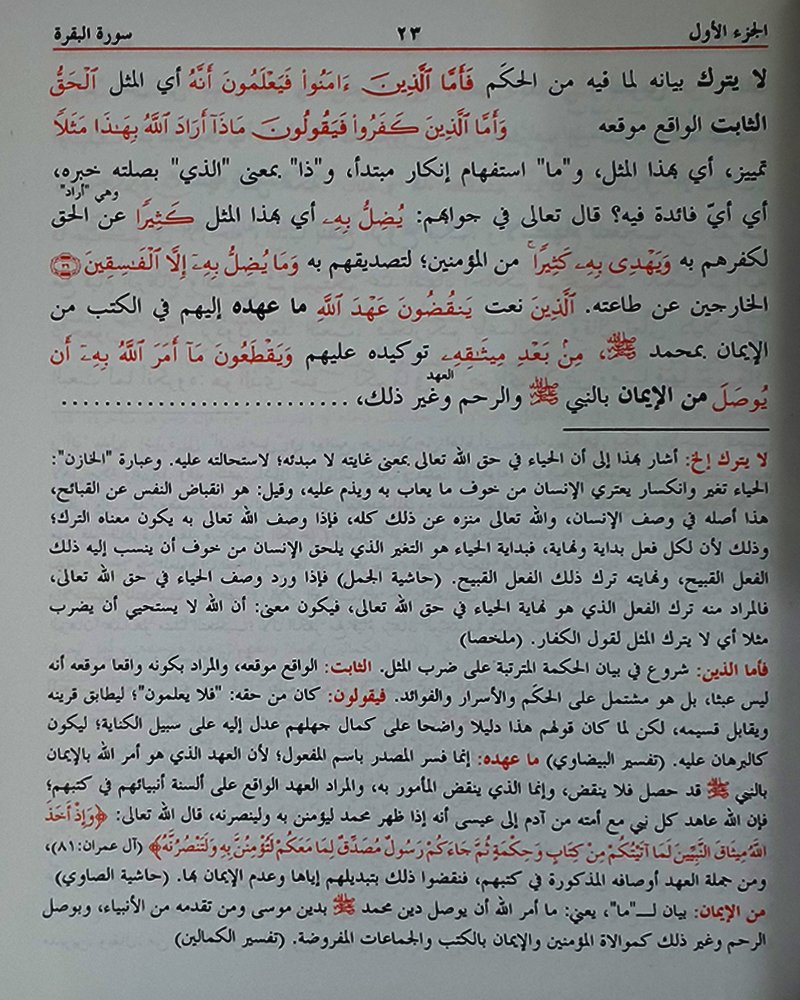 الجزء الأول ٢٣ سورة البقرة
لا يترك بيانه لما فيه من الحكَم فَأَمَّا ٱلَّذِينَ ءَامَنُوا۟ فَيَعْلَمُونَ أَنَّهُ أي المثل ٱلْحَقُّ
الثابت الواقع موقعه وَأَمَّا ٱلَّذِينَ كَفَرُوا۟ فَيَقُولُونَ مَاذَآ أَرَادَ ٱللَّهُ بِهَـٰذَا مَثَلًا
تمييز، أي بهذا المثل، و"ما" استفهام إنكار مبتدأ، و"ذا" بمعنى "الذي" بصلته خبره،
وهي "أراد"
أي أيّ فائدة فيه؟ قال تعالى في جوابهم: يُضِلُّ بِهِۦ أي بهذا المثل كَثِيرًا عن الحق
لكفرهم به وَيَهْدِى بِهِۦ كَثِيرًا ۚ من المؤمنين؛ لتصديقهم به وَمَا يُضِلُّ بِهِۦٓ إِلَّا ٱلْفَـٰسِقِينَ ٢٦
الخارجين عن طاعته. ٱلَّذِينَ نعت يَنقُضُونَ عَهْدَ ٱللَّهِ ما عهده إليهم في الكتب من
الإيمان بمحمد ﷺ، مِنۢ بَعْدِ مِيثَـٰقِهِۦ توكيده عليهم وَيَقْطَعُونَ مَآ أَمَرَ ٱللَّهُ بِهِۦٓ أَن
العهد
يُوصَلَ من الإيمان بالنبي ﷺ والرحم وغير ذلك، .........................
لا يترك إلخ: أشار بهذا إلى أن الحياء في حق الله تعالى بمعنى غايته لا مبدئه؛ لاستحالته عليه. وعبارة "الخازن":
الحياء تغير وانكسار يعتري الإنسان من خوف ما يعاب به ويذم عليه، وقيل: هو انقباض النفس عن القبائح،
هذا أصله في وصف الإنسان، والله تعالى منزه عن ذلك كله، فإذا وصف الله تعالى به يكون معناه الترك؛
وذلك لأن لكل فعل بداية ونهاية، فبداية الحياء هو التغير الذي يلحق الإنسان من خوف أن ينسب إليه ذلك
الفعل القبيح، ونهايته ترك ذلك الفعل القبيح. (حاشية الجمل) فإذا ورد وصف الحياء في حق الله تعالى،
فالمراد منه ترك الفعل الذي هو نهاية الحياء في حق الله تعالى، فيكون معنى: أن الله لا يستحيي أن يضرب
مثلا أي لا يترك المثل لقول الكفار. (ملخصا)
فأما الذين: شروع في بيان الحكمة المترتبة على ضرب المثل. الثابت: الواقع موقعه، والمراد بكونه واقعا موقعه أنه
ليس عبثا، بل هو مشتمل على الحكَم والأسرار والفوائد. فيقولون: كان من حقه: "فلا يعلمون"؛ ليطابق قرينه
ويقابل قسيمه، لكن لما كان قولهم هذا دليلا واضحا على كمال جهلهم عدل إليه على سبيل الكناية؛ ليكون
كالبرهان عليه. (تفسير البيضاوي) ما عهده: إنما فسر المصدر باسم المفعول؛ لأن العهد الذي هو أمر الله بالإيمان
بالنبي ﷺ قد حصل فلا ينقض، وإنما الذي ينقض المأمور به، والمراد العهد الواقع على ألسنة أنبيائهم في كتبهم؛
فإن الله عاهد كل نبي مع أمته من آدم إلى عيسى أنه إذا ظهر محمد ليؤمنن به ولينصرنه، قال الله تعالى: ﴿وَإِذْ أَخَذَ
اللَّهُ مِيثَاقَ النَّبِيِّينَ لَمَا آتَيْتُكُمْ مِنْ كِتَابٍ وَحِكْمَةٍ ثُمَّ جَاءَكُمْ رَسُولٌ مُصَدِّقٌ لِمَا مَعَكُمْ لَتُؤْمِنُنَّ بِهِ وَلَتَنْصُرُنَّهُ﴾ (آل عمران:٨١)،
ومن جملة العهد أوصافه المذكورة في كتبهم، فنقضوا ذلك بتبديلهم إياها وعدم الإيمان بها. (حاشية الصاوي)
من الإيمان: بيان لــ"ما"، يعني: ما أمر الله أن يوصل دين محمد ﷺ بدين موسى ومن تقدمه من الأنبياء، وبوصل
الرحم وغير ذلك كموالاة المؤمنين والإيمان بالكتب والجماعات المفروضة. (تفسير الكمالين)